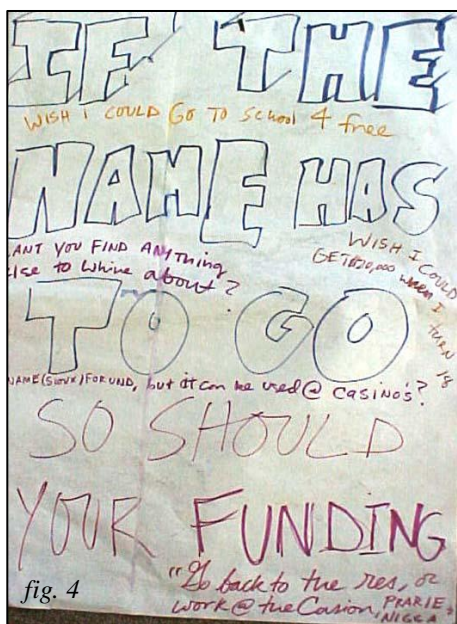 IF THE
WISH I COULD GO TO SCHOOL 4 free
NAME HAS
ANT YOU FIND ANYTHING
lse to whine about?
WISH I COULD
GET $20,000 when I
TURN
18
TO GO
NAME (SIOUX) FOR UND, but it can be used @ casino's?
SO SHOULD
YOUR FUNDING
"Go back to the res, or
work @ the Casion, PRARIE
NIGGA
fig. 4